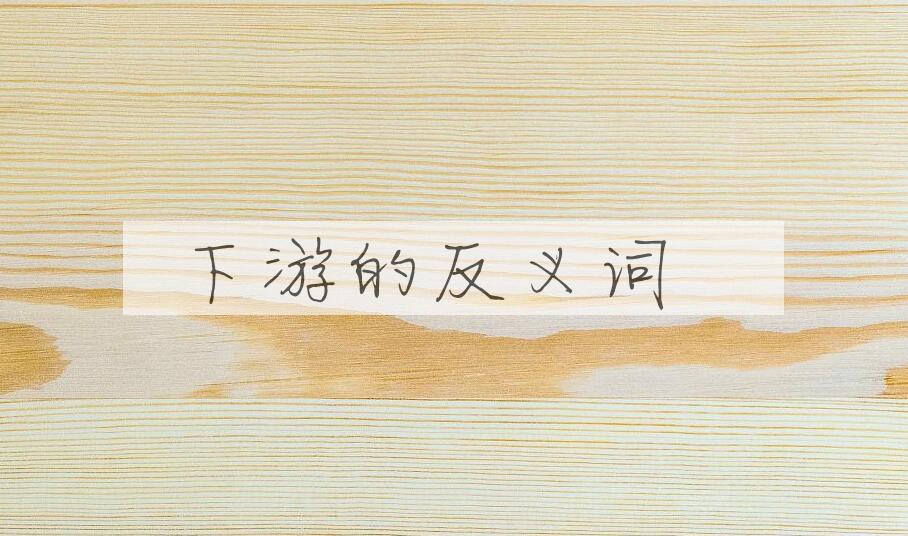 下游的反义词